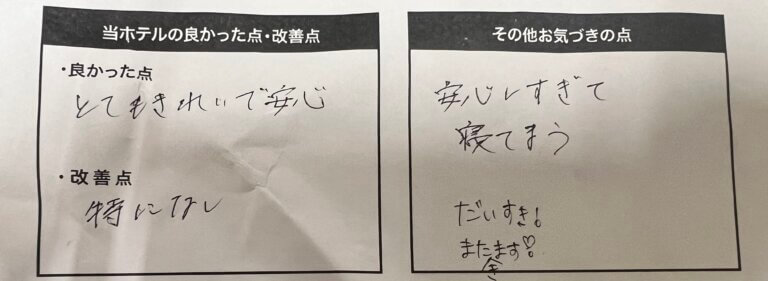 当ホテルの良かった点・改善点
・良かった点
とてもきれいで安心
・改善点
特になし
その他お気づきの点
安心しすぎて
寝てまう
だいすき!
また来ます♡!